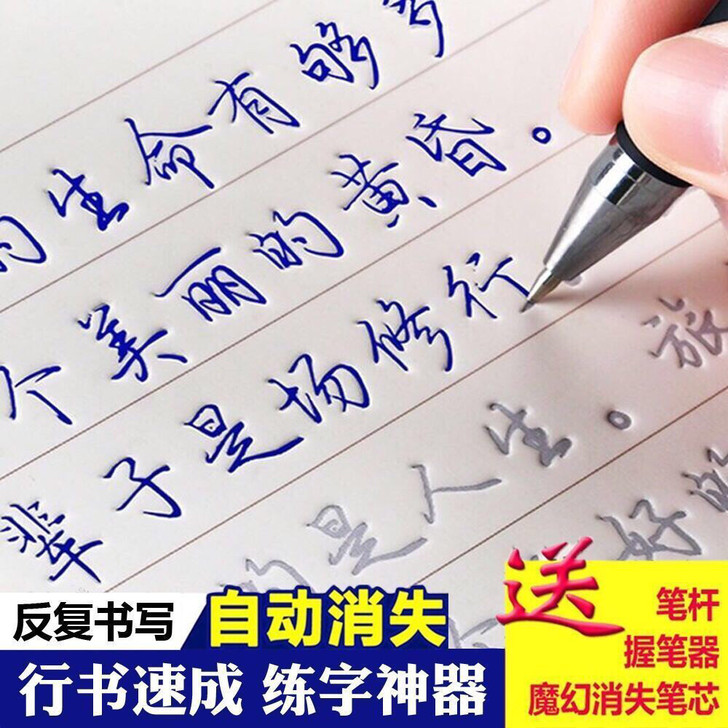 的生命有够多
个美丽的黄昏。
辈子是场修行
的是人生。旅
好的
反复书写 自动消失
行书速成 练字神器
送
笔杆
握笔器
魔幻消失笔芯